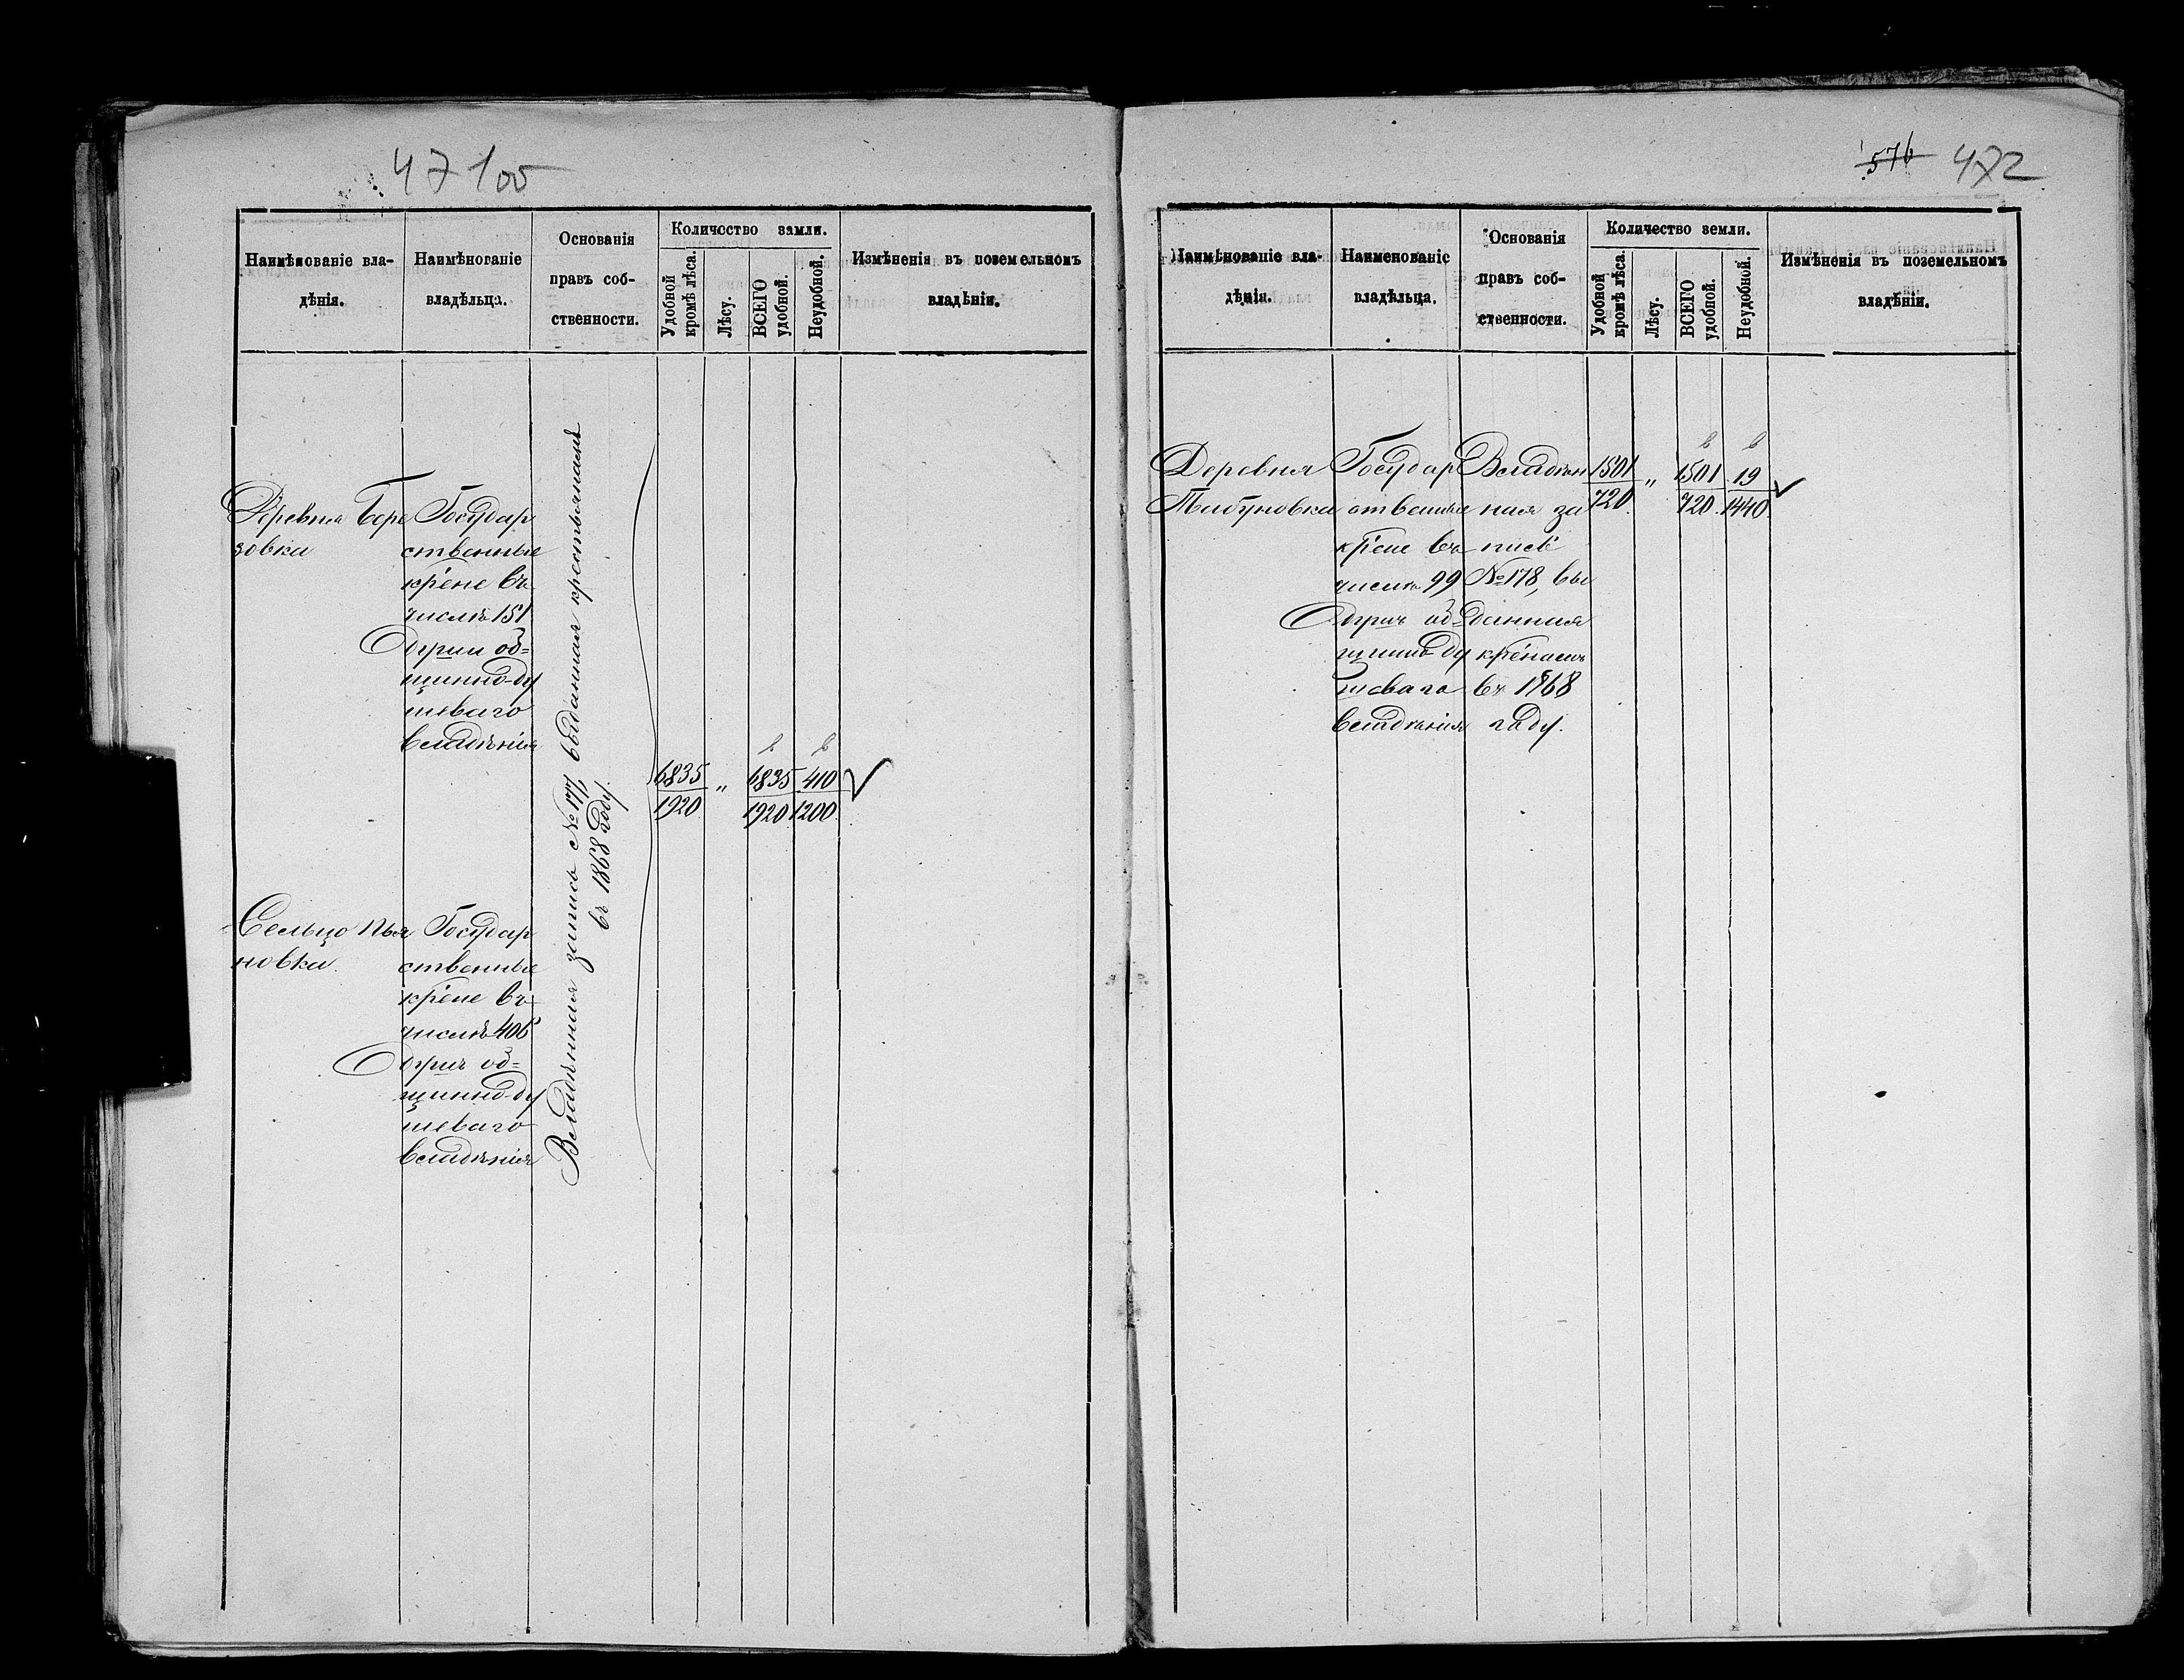 471об
Наимѣнованіе вла-
дѣнія.
Наимѣнованіе
владѣльца.
Основанія
правъ соб-
ственности.
Количество земли.
Удобной
кромѣ лѣса.
Лѣсу.
ВСЕГО
удобной.
Неудобной.
Измѣненія въ поземельномъ
владѣніи.
Деревня Бере
зовка
Государ
ственные
кр̃не въ
числѣ 151
души об=
щинно-ду
шеваго
владѣнія
Владѣнная запись №177, выданная крестьянамъ
въ 1868 году.
6835
1920
"
6835
1920
410
1200
Сельцо Пья
новка.
Государ
ственные
кр̃не въ
числѣ 406
душъ об=
щинно-ду
шеваго
владѣнія
576 472
Наименованіе вла-
дѣнія.
Наименованіе
владѣльца.
Основанія
правъ соб-
ственности.
Количество земли.
Удобной
кромѣ лѣса.
Лѣсу.
ВСЕГО
удобной.
Неудобной.
Измѣненія въ поземельномъ
владѣніи.
Деревня
Табуновка
Государ
ственные
кр̃не въ
числѣ 99
душъ об=
щинно ду
шеваго
владѣнія
Владѣн
ная за
пись
№178, вы
данная
кр̃намъ
въ 1868
году.
1501
720.
"
1501
720.
19
1440.